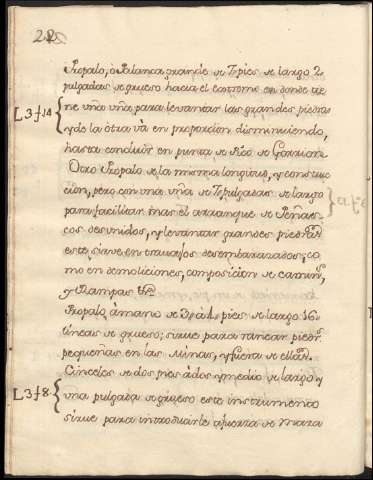 22
Ropalo, o Palanca grande de 7 pies de largo 2
pulgadas de grueso hacia el extremo en donde tie-
L 3 f 14
ne una uña para levantar las grandes piedras
y de la otra và en proporcion disminuiendo,
hasta concluir en punta de Pico de Gorrion.
Otro Ropalo de la misma longitud, y construc-
cion, pero con una uña de 7 pulgadas de largo
para facilitar mas el arranque de Peñas-
cos desunidos, y levantar grandes piedras
este sirve en travajos desembarazados, co-
mo en demoliciones, composicion de camin.s,
y Rampas &.a
Ropalo à mano de 3 ò à 4 pies de largo 16
lineas de grueso; sirve para rancar piedr.s
pequeñas en las Minas, y fuera de ellas.
Cinceles de dos pies à dos y medio de largo y
L 3 f 8
una pulgada de grueso este instrumento
sirve para introducirle à fuerza de